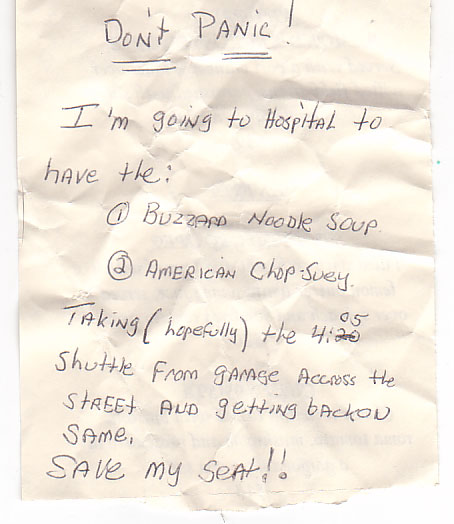 Don't Panic!
I'm going to Hospital to
have the:
① Buzzard Noodle Soup.
② American Chop-Suey.
Taking (hopefully) the 4:05
Shuttle from garage Accross the
street and getting back on
same.
Save my seat!!